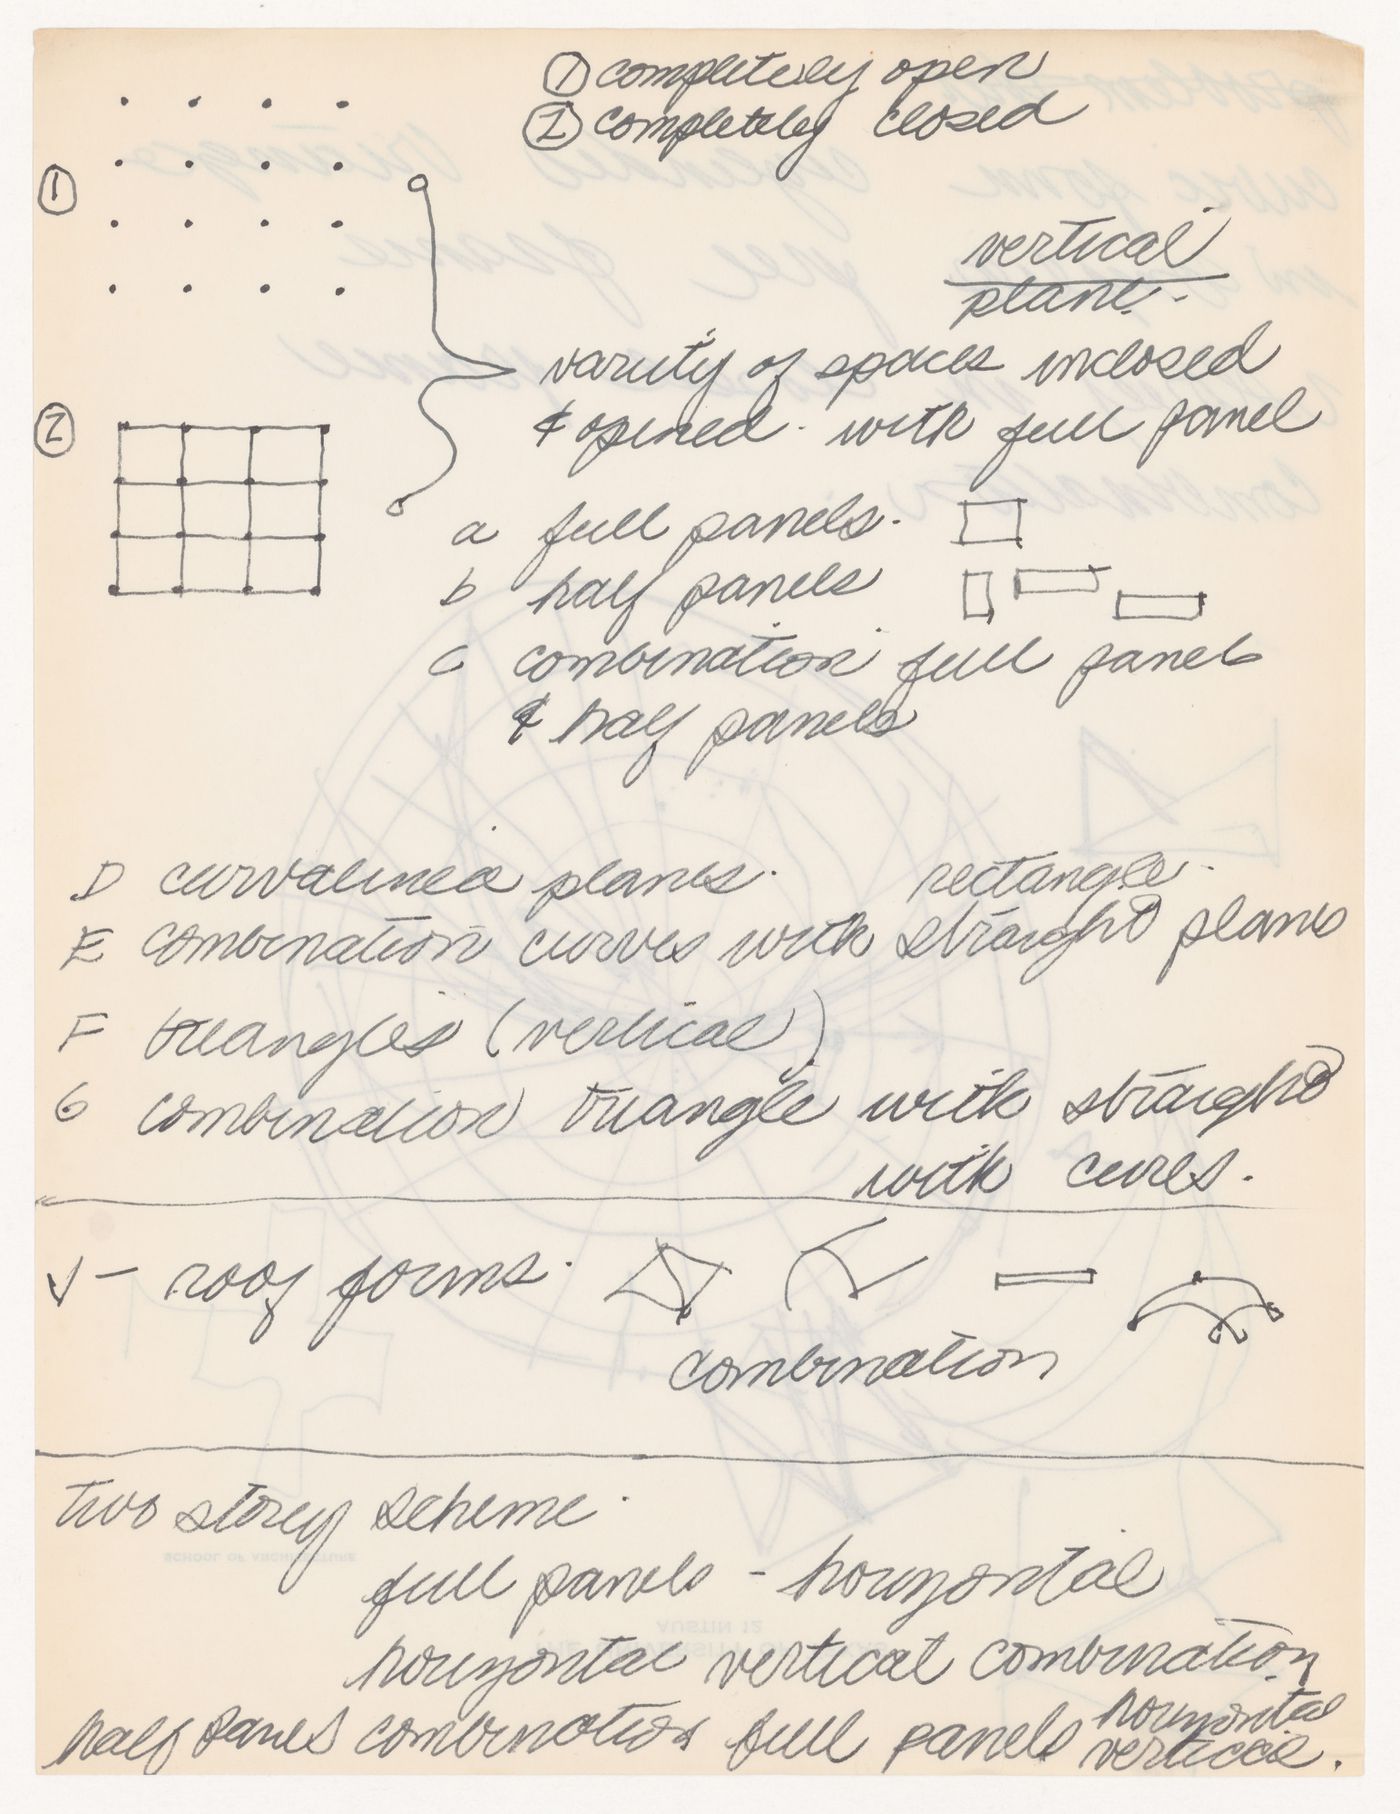 ① completely open
② completely closed
①
vertical
plane.
variety of spaces inclosed
& opened. with full panel
②
a full panels.
b half panels
c combination full panels
& half panels
D curvalinea planes. rectangle.
E combination curves with straight planes
F triangles (vertical)
G combination triangle with straight
with cures.
V- roof forms.
combination
two storey scheme.
SCHOOL OF ARCHITECTURE
full panels - horizontal
AUSTIN 12
horizontal vertical combination
half panels combination full panels horizontal
vertical.